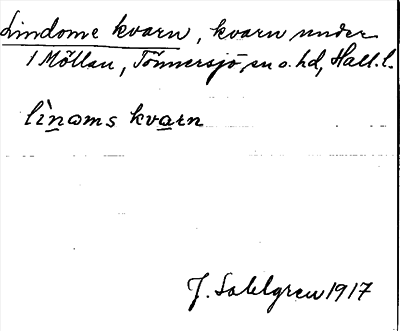 Lindome kvarn, kvarn under
1 Möllan, Tönnersjö sn o. hd, Hall. l.
lìnams kvarn
J. Sahlgren 1917